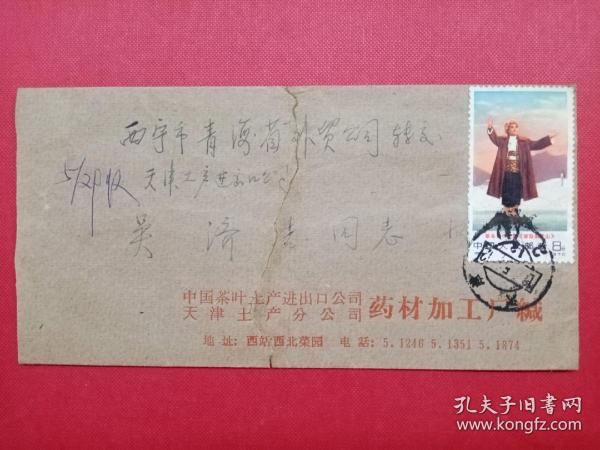 西宁市青海省外贸公司转交
天津土产进出口公司
吴济 同志
中国人民邮政 8分
天津
中国茶叶土产进出口公司
天津土产分公司 药材加工厂缄
地址:西站西北菜园 电话:5.1246 5.1351 5.1874
孔夫子旧书网
www.kongfz.com